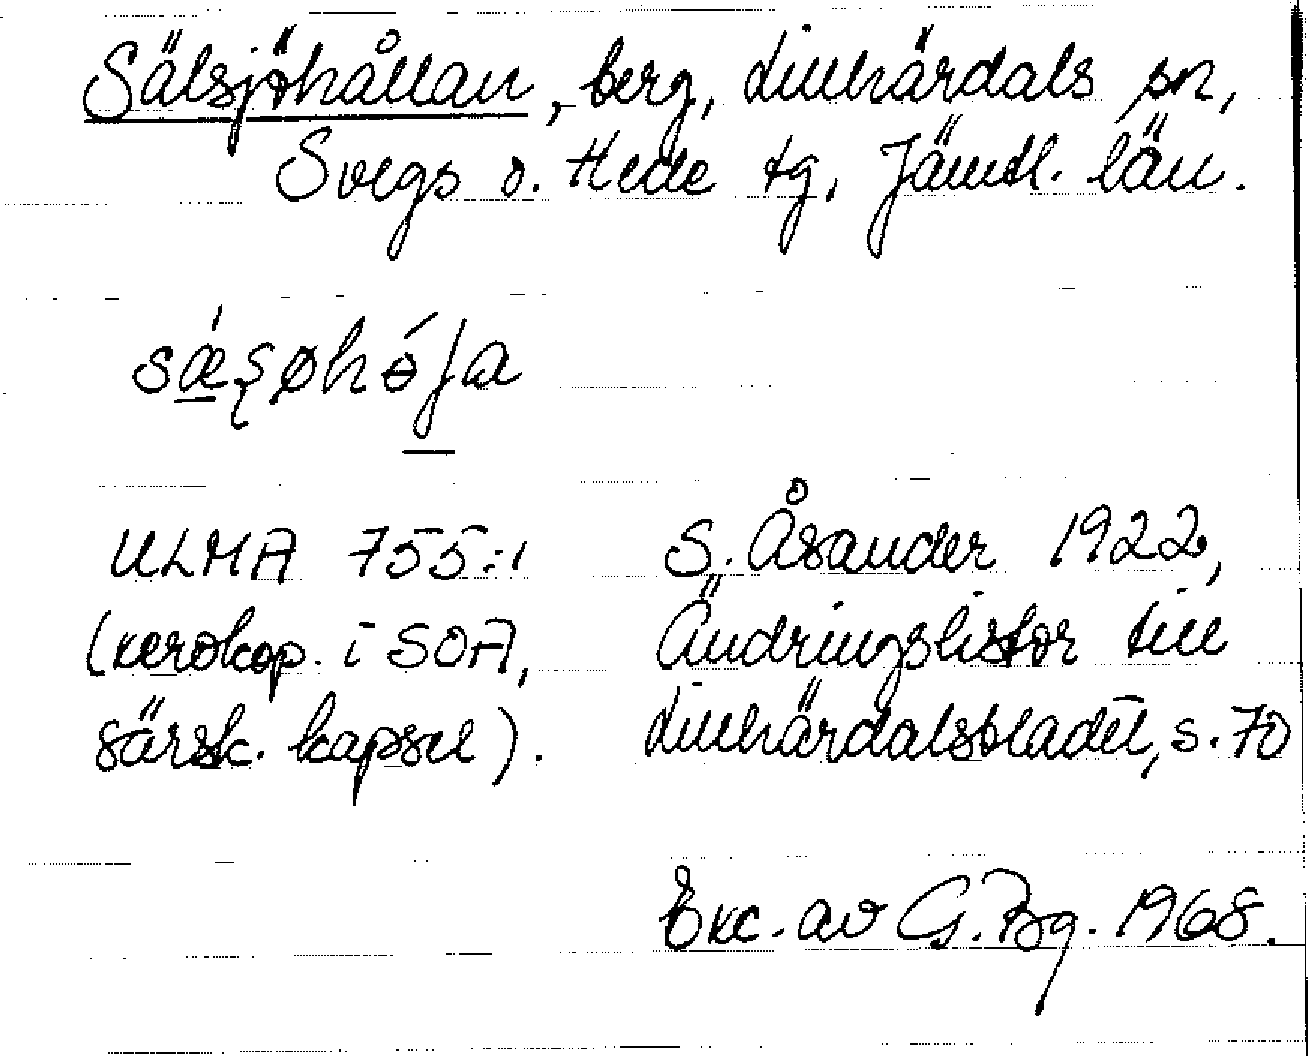 Sälsjöhållan, berg, Lillhärdals sn,
Svegs o. Hede tg, Jämtl. län.
ULMA 755:1
(xerokop. i SOA,
särsk. kapsel).
S. Åsander 1922,
Ändringslistor till
Lillhärdalsbladet, s. 70
Exc. av G. Bg. 1968.